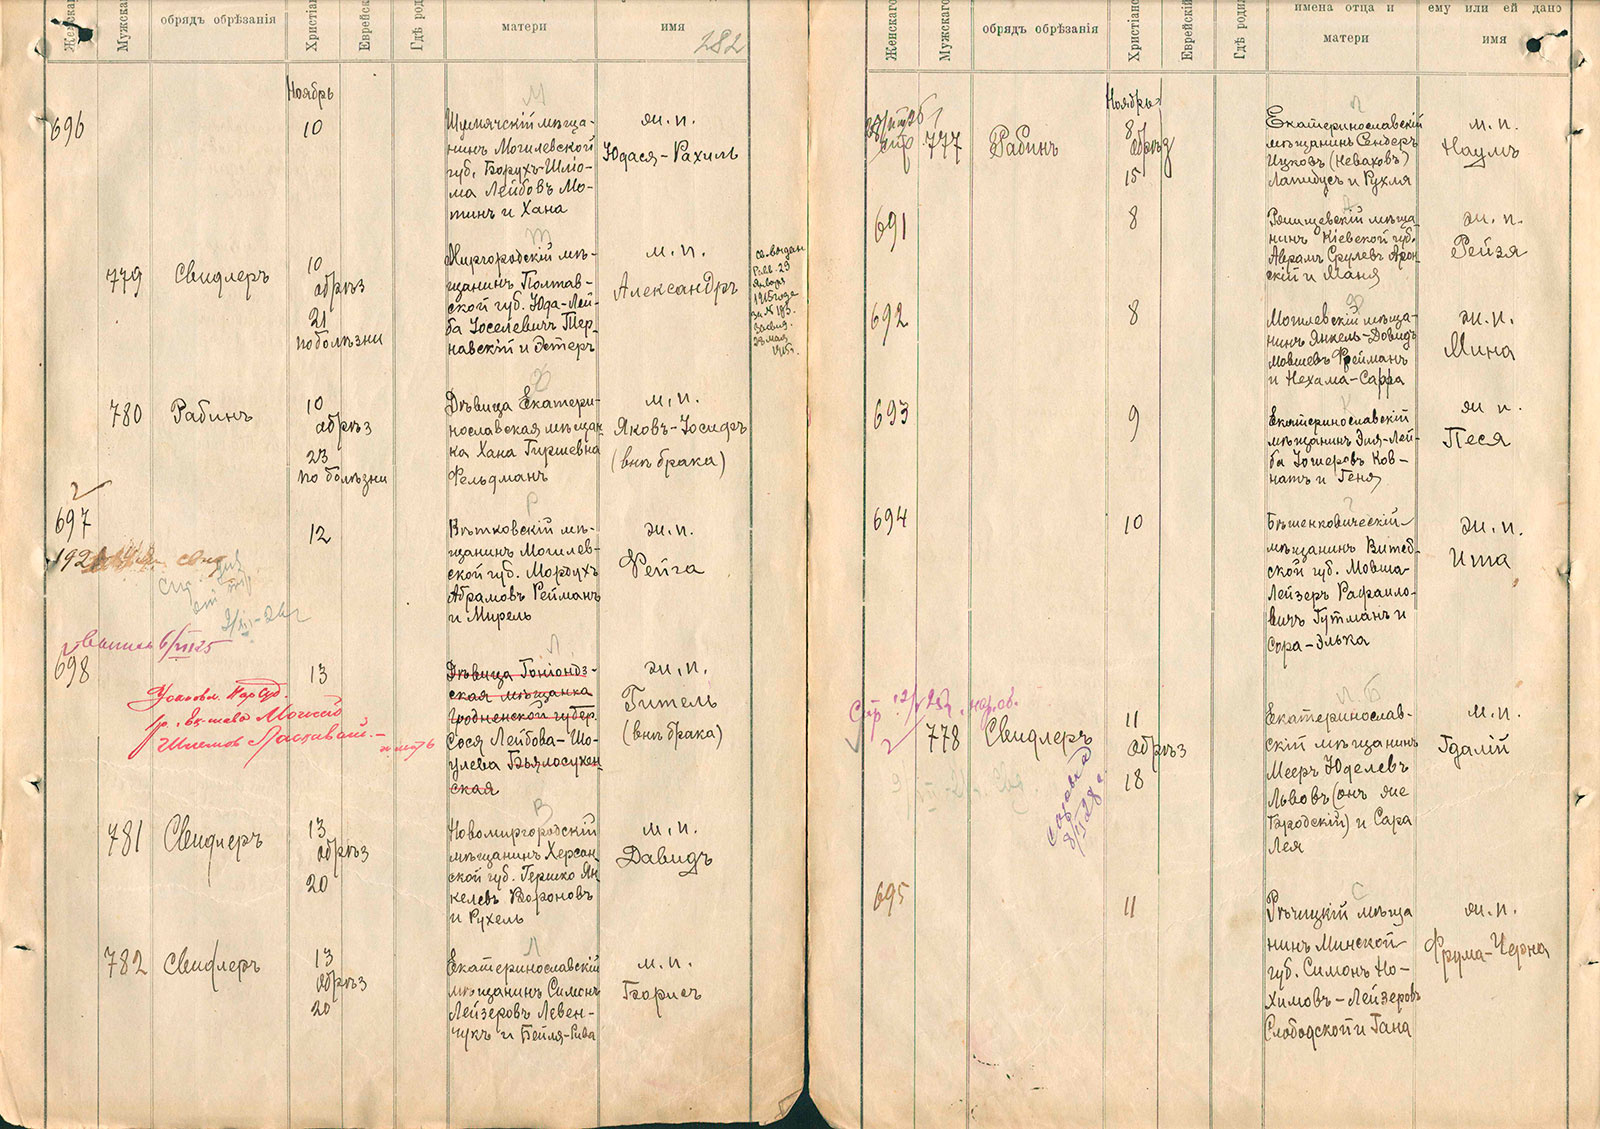 Женска
Мужска
обрядъ обрѣзанія
Христіан
Еврейск
Гдѣ род
матери
имя
282
Ноябрь
696
10
Шумячскій мѣща-
нинъ Могилевской
губ. Борухъ-Шлио-
ма Лейбовъ Мо-
тинъ и Хана
ж. п.
Юдася-Рахиль
779
Свидлеръ
10
обрѣз
21
по болѣзни
Миргородскій мѣ-
щанинъ Полтав-
ской губ. Юда-Лей-
ба Іоселевичъ Тер-
навскій и Эстеръ
м. п.
Александръ
св. выдан
29
Января
1915 года
за № 183.
23 мая
780
Рабинъ
10
обрѣз
23
по болѣзни
Дѣвица Екатери-
нославская мѣщан-
ка Хана Гиршевна
Фельдманъ
м. п.
Яковъ-Іосифъ
(внѣ брака)
697
12
Вѣтковскій мѣ-
щанинъ Могилев-
ской губ. Мордухъ
Абрамовъ Рейманъ
и Мирель
ж. п.
Фейга
698
13
Дѣвица Гоніондз-
ская мѣщанка
Гродненской губер.
Сося Лейбова-Шо-
улева Бѣялосукен-
ская
ж. п.
Гитель
(внѣ брака)
и мать
781
Свидлеръ
13
обрѣз
20
Новомиргородскій
мѣщанинъ Херсон
ской губ. Гершко Ян
келевъ Вороновъ
и Рухель
м. п.
Давидъ
782
Свидлеръ
13
обрѣз
20
Екатеринославскій
мѣщанинъ Симонъ
Лейзеровъ Левен-
чукъ и Бейля-Рива
м. п.
Борисъ
Женскаго
Мужскаго
обрядъ обрѣзанія
Христіанс
Еврейскій
Гдѣ родил
имена отца и
матери
ему или ей дано
имя
Ноябрь
777
Рабинъ
8
обрѣз
15
Екатеринославскій
мѣщанинъ Сендеръ
Ицковъ (Неваховъ)
Лапидусъ и Рухля
м. п.
Наумъ
691
8
мѣща
нинъ Кіевской губ.
Аврамъ Срулевъ Арон-
скій и Маня
ж. п.
Рейзя
692
8
Могилевскій мѣща-
нинъ Янкель-Довидъ
Мовшевъ Фрейманъ
и Нехама-Сарра
ж. п.
Мина
693
9
Екатеринославскій
мѣщанинъ Эля-Лей-
ба Ков-
натъ и Геня
ж п.
Песя
694
10
Бѣшенковическій
мѣщанинъ Витеб-
ской губ. Мовша-
Лейзеръ Рафаило-
вичъ Гутманъ и
Сора-Элька
ж. п.
Ита
778
Свидлеръ
11
обрѣз
18
Екатеринослав-
скій мѣщанинъ
Мееръ Юделевъ
Львовъ (онъ же
Бродскій) и Сара
Лея
м. п.
Гдалій
695
11
Рѣчицкій мѣща
нинъ Минской
губ. Симонъ Но-
химовъ-Лейзеровъ
Слободской и Гана
ж. п.
Фрума-Черна